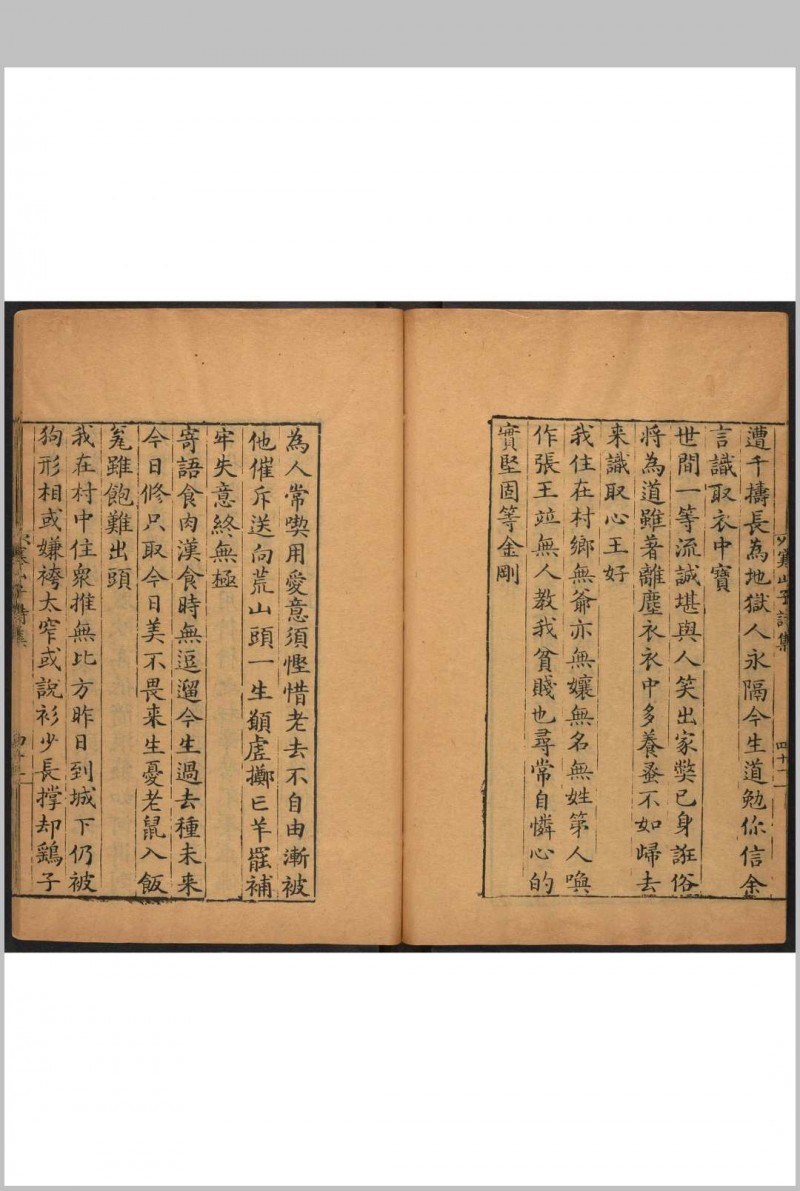 遭千擣長為地獄人永隔今生道勉你信余
言識取衣中寶
世間一等流誠堪與人笑出家獘已身誑俗
将為道雖著離塵衣衣中多養蚤不如歸去
来識取心王好
我住在村鄉無爺亦無孃無名無姓第人喚
作張王竝無人教我貧賤也尋常自憐心的
實堅固等金剛
寒山子詩集
為人常喫用愛意須慳惜老去不自由漸被
他催斥送向荒山頭一生願虗擲亡羊罷補
牢失意終無極
寄語食肉漢食時無逗遛今生過去種未来
今日修只取今日美不畏来生憂老鼠入飯
瓮雖飽難出頭
我在村中住衆推無比方昨日到城下仍被
狗形相或嫌袴太窄或說衫少長撑却鷂子